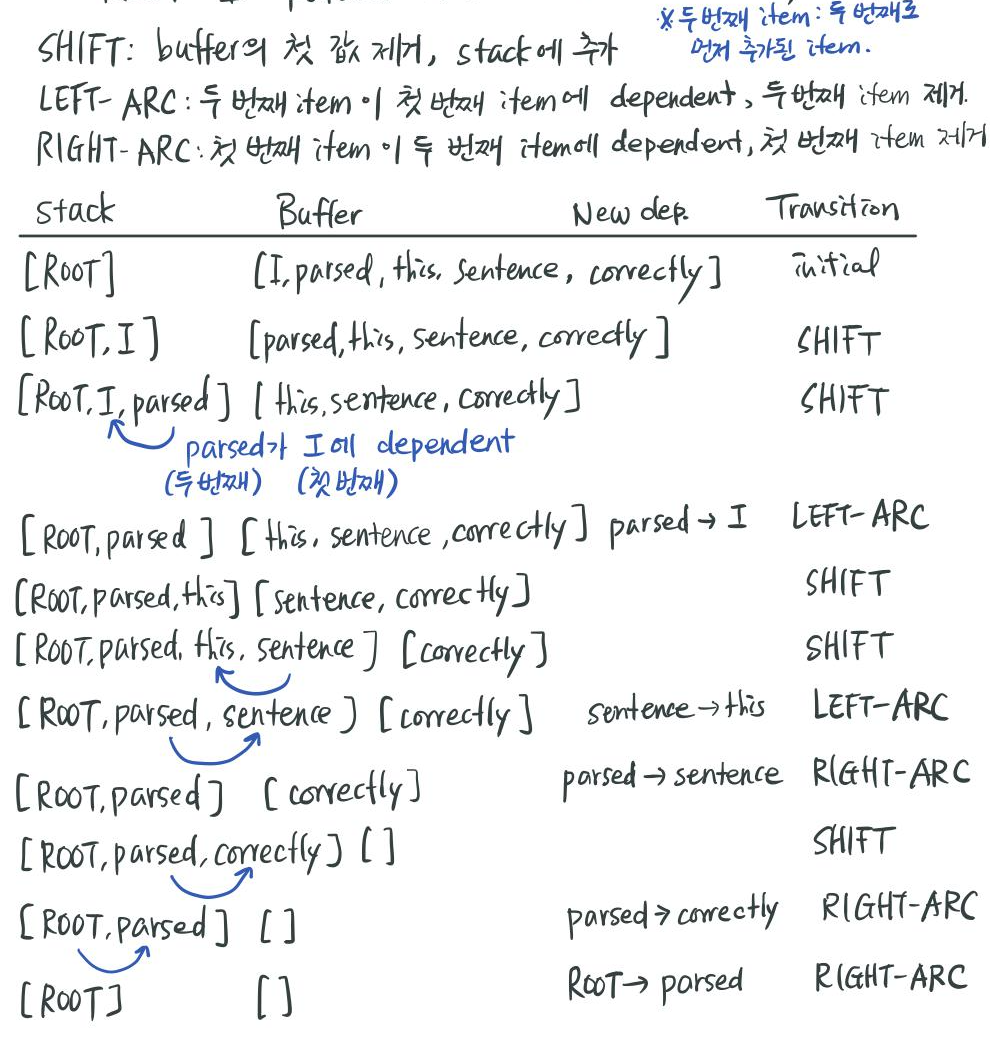 ※두번째 item: 두번째로
먼저 추가된 item.
SHIFT: buffer의 첫 값 제거, stack에 추가
LEFT-ARC: 두 번째 item이 첫 번째 item에 dependent, 두번째 item 제거.
RIGHT-ARC: 첫 번째 item이 두 번째 item에 dependent, 첫 번째 item 제거
Stack Buffer New dep. Transition
[ROOT] [I, parsed, this, sentence, correctly] initial
[ROOT, I] [parsed, this, sentence, correctly] SHIFT
[ROOT, I, parsed] [this, sentence, correctly] SHIFT
parsed가 I에 dependent
(두번째) (첫번째)
[ROOT, parsed] [this, sentence, correctly] parsed → I LEFT-ARC
[ROOT, parsed, this] [sentence, correctly] SHIFT
[ROOT, parsed, this, sentence] [correctly] SHIFT
[ROOT, parsed, sentence] [correctly] sentence → this LEFT-ARC
[ROOT, parsed] [correctly] parsed → sentence RIGHT-ARC
[ROOT, parsed, correctly] [] SHIFT
[ROOT, parsed] [] parsed → correctly RIGHT-ARC
[ROOT] [] ROOT → parsed RIGHT-ARC